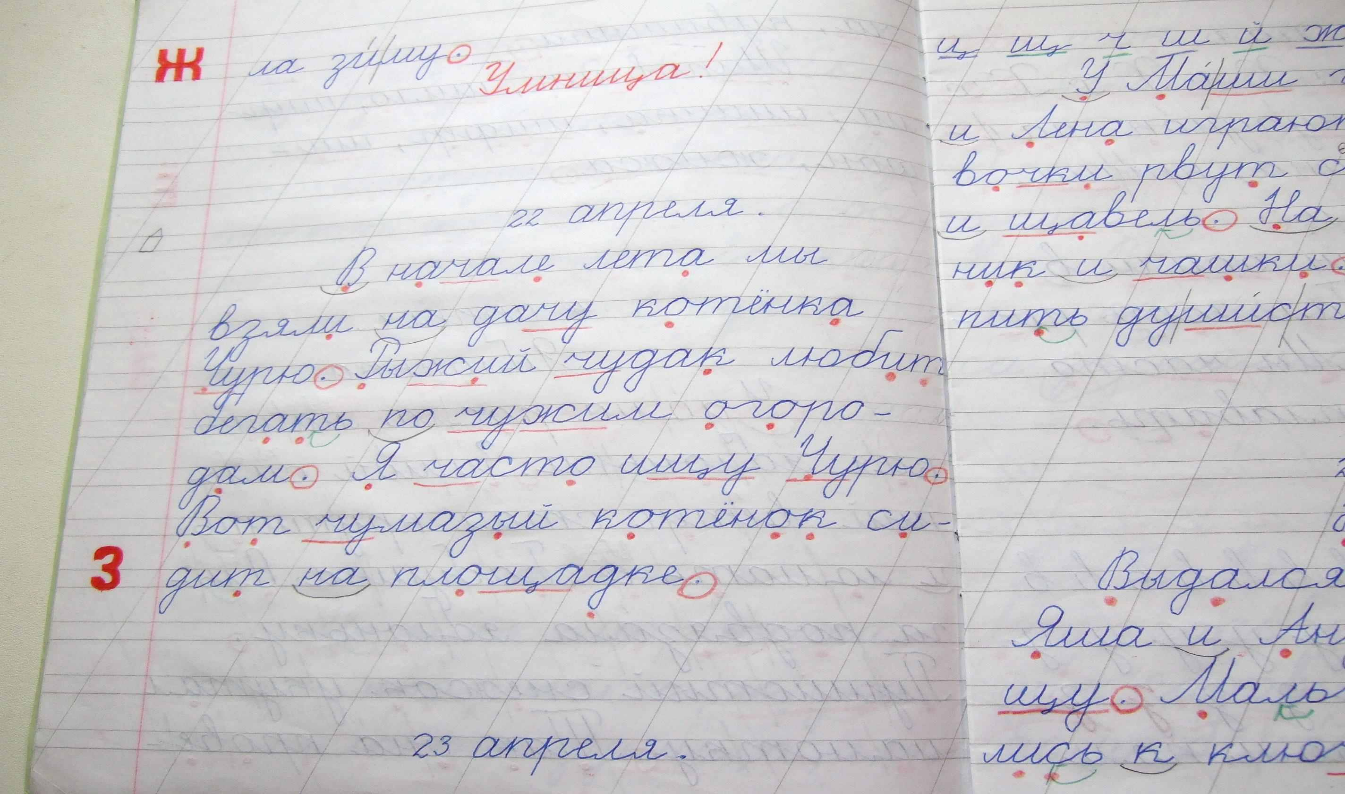 Ж
ла зиму.
Умница!
22 апреля.
В начале лета мы
взяли на дачу котёнка
Чурю. Рыжий чудак любит
бегать по чужим огоро-
дам. Я часто ищу Чурю.
Вот чумазый котёнок си-
дит на площадке.
З
23 апреля.
щ щ ч ш й ж
У Маши
и Лена играют
вочки рвут
и щавель. На
ник и чашки.
пить душист
Выдался
Яша и Ан
щу. Маль
лись к клю